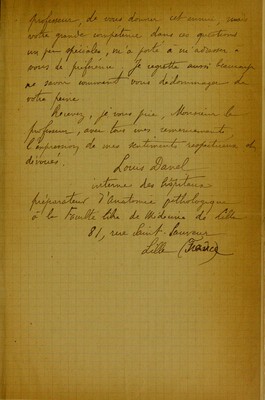 professeur, de vous donner cet ennui, mais
votre grande compétence dans ces questions
un peu spéciales, m'a porté à m'adresser à
vous de préférence. Je regrette aussi beaucoup
ne savoir comment vous dédommager de
votre peine
Recevez, je vous prie, Monsieur le
professeur, avec tous mes remerciements,
l'expression de mes sentiments respectueux et
dévoués.
Louis Danel
interne des hôpitaux
préparateur d'anatomie pathologique
à la Faculté libre de Médecine de Lille
81, rue Saint-Sauveur
Lille (France)